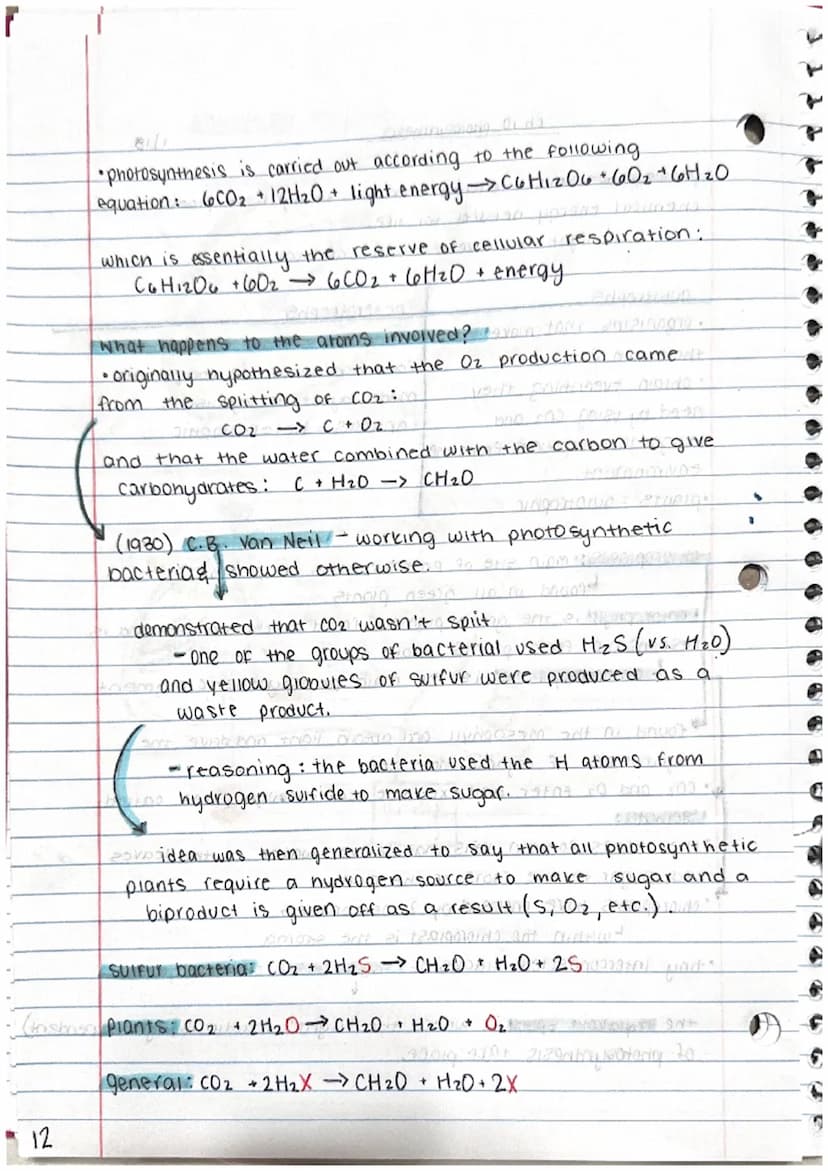 •photosynthesis is carried out according to the following
equation: 6CO2 + 12H2O + light energy → C6H12O6 + 6O2 + 6H2O
which is essentially the reserve of cellular respiration:
C6H12O6 + 6O2 → 6CO2 + 6H2O + energy
What happens to the atoms involved?
• originally hypothesized that the O2 production came
from the splitting of CO2:
CO2 → C + O2
and that the water combined with the carbon to give
carbohydrates: C + H2O → CH2O
(1930) C.B. Van Neil - working with photosynthetic
bacteria & showed otherwise.
demonstrated that CO2 wasn't split
- one of the groups of bacterial used H2S (vs. H2O)
and yellow globules of sulfur were produced as a
waste product.
- reasoning: the bacteria used the H atoms from
hydrogen sulfide to make sugar.
idea was then generalized to say that all photosynthetic
plants require a hydrogen source to make sugar and a
biproduct is given off as a result (S, O2, etc.).
sulfur bacteria: CO2 + 2H2S → CH2O + H2O + 2S
Plants: CO2 + 2H2O → CH2O + H2O + O2
general: CO2 + 2H2X → CH2O + H2O + 2X
12